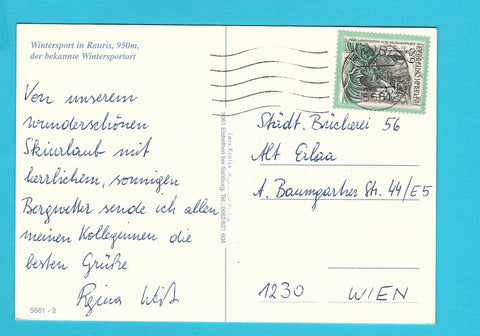 Wintersport in Rauris, 950m,
der bekannte Wintersportort
Von unserem
wunderschönen
Skiurlaub mit
herrlichem, sonnigen
Bergwetter sende ich allen
meinen Kolleginnen die
besten Grüße
Regina
5661 - 2
REPUBLIK ÖSTERREICH
Städt. Bücherei 56
Alt Erlaa
A. Baumgartner Str. 44/E5
1230 WIEN